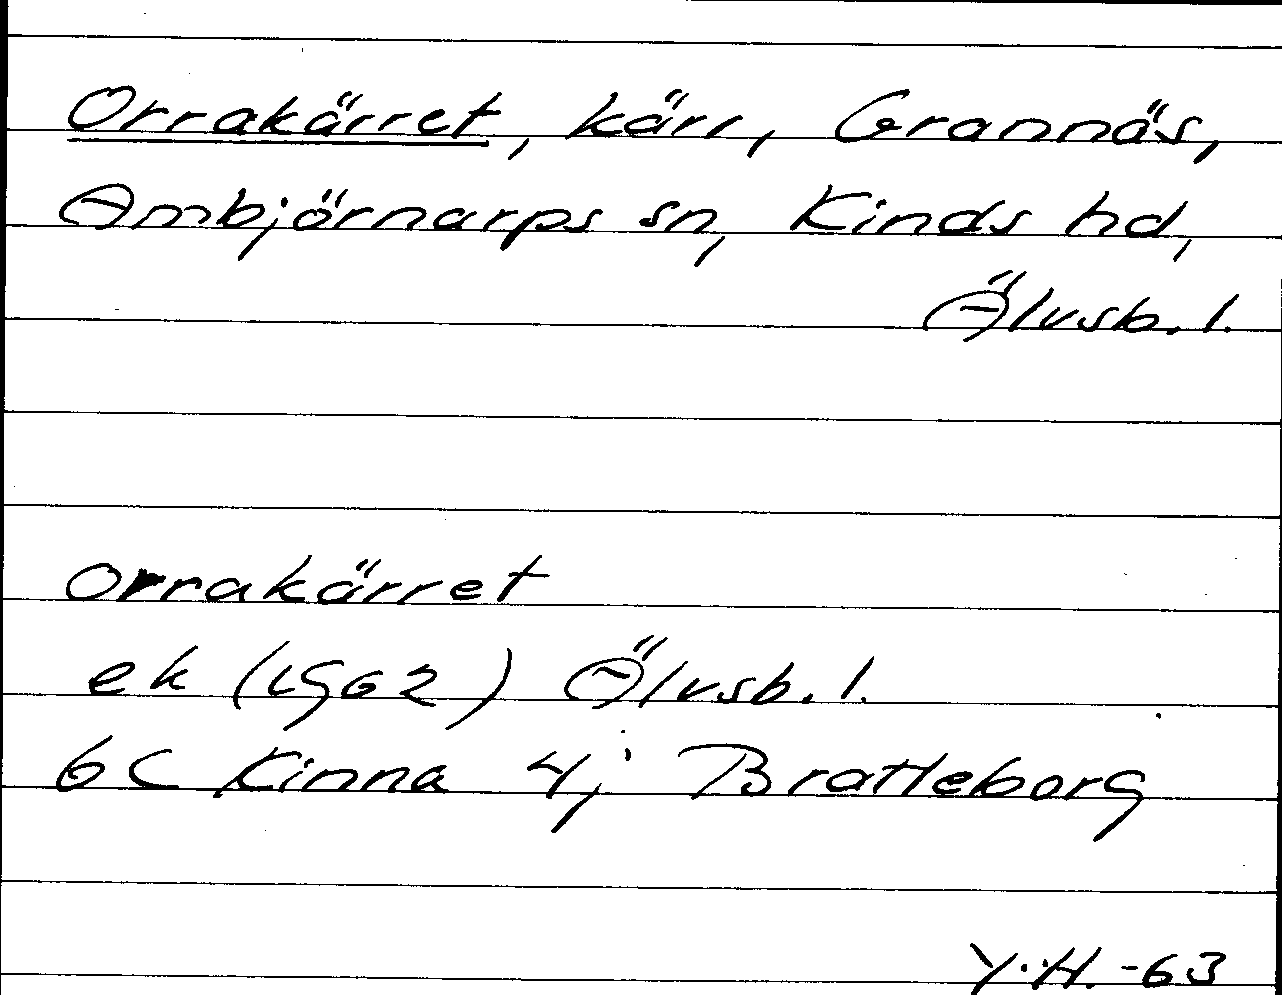 Orrakärret, kärr, Grannäs,
Ambjörnarps sn, Kinds hd,
Älvsb. l.
Orrakärret
ek (1962) Älvsb. l.
6C Kinna 4j Bratteborg
Y.H. -63